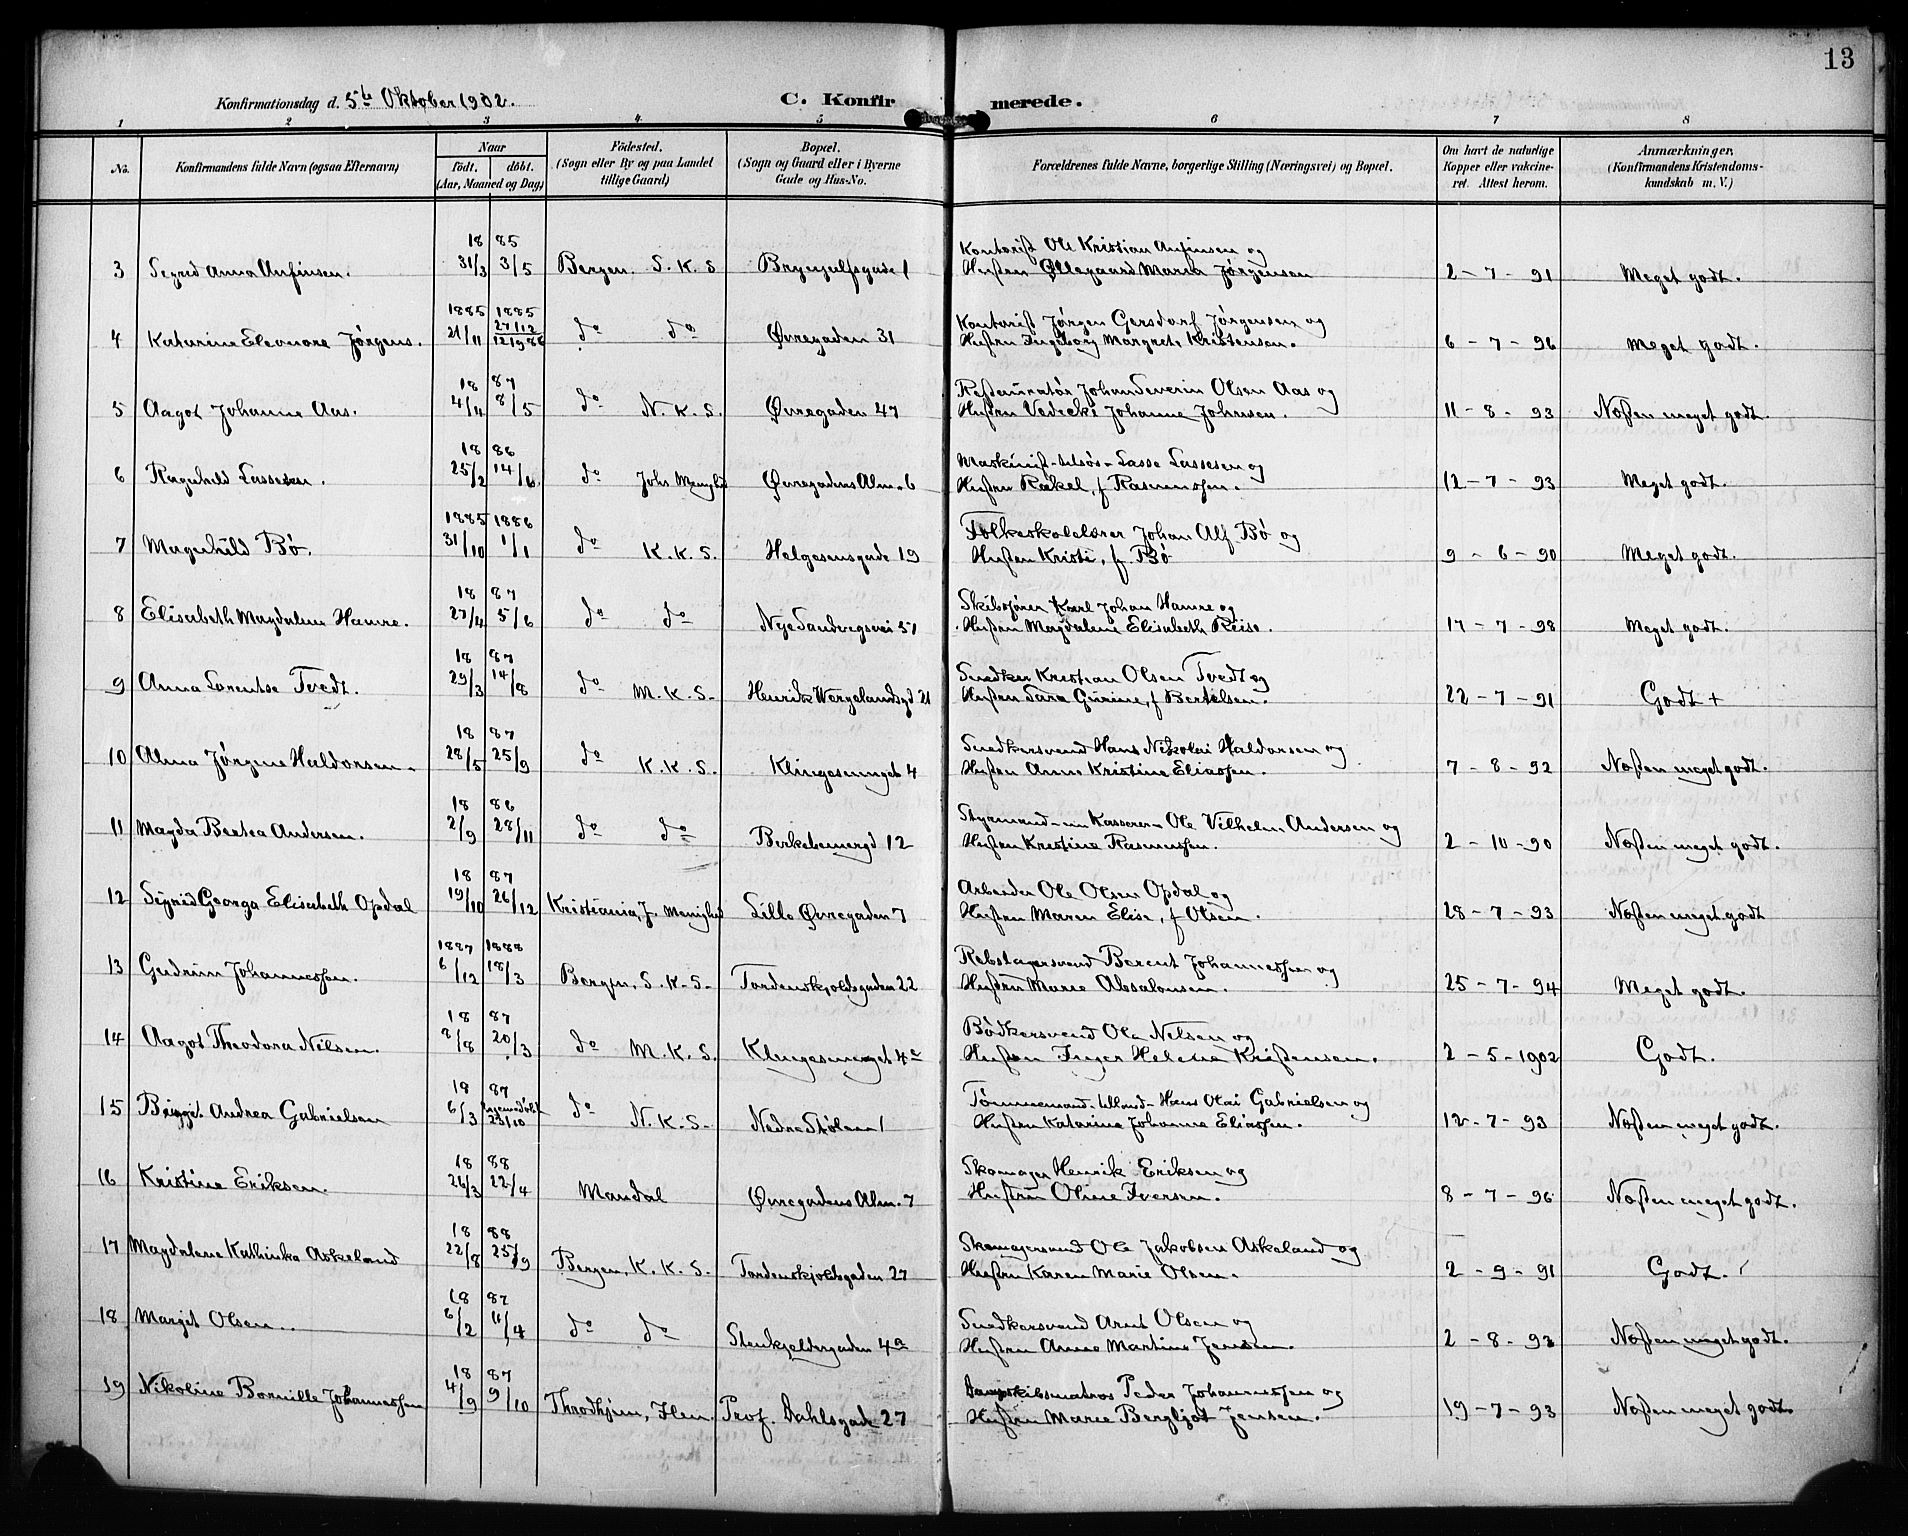 13
Konfirmationsdag d. 5te Oktober 1902.
C. Konfirmerede.
1 2 3 4 5 6 7 8
No. Konfirmandens fulde Navn (ogsaa Efternavn) Naar Födt. döbt. (Aar, Maaned og Dag) Födested. (Sogn eller By og paa Landet tillige Gaard) Bopæl. (Sogn og Gaard eller i Byerne Gade og Hus-No. Forældrenes fulde Navne, borgerlige Stilling (Næringsvei) og Bopæl. Om havt de naturlige Kopper eller vakcineret. Attest herom. Anmærkninger, (Konfirmandens Kristendomskundskab m. V.)
18 85 Kontorist Ole Kristian Anfinsen og
3 Sigrid Anna Anfinsen. 31/3 3/5 Bergen. S. K. S Brynjulfsgade 1 Hustru Øllegaard Maria Jørgensen 2 - 7 - 91 Meget godt.
1885 1885 Kontorist Jørgen Gersdorf Jørgensen og
4 Katarine Eleonore Jørgens. 21/11 27/12 12/9 86 do do Øvregaden 31 Hustru Ingeborg Margrete Kristensen. 6 - 7 - 96 Meget godt.
18 87 Restauratør Johan Severin Olsen Aas og
5 Aagot Johanne Aas. 4/4 8/5 do N. K. S. Øvregaden 47 Hustru Johanne Johnsen. 11 - 8 - 93 Næsten meget godt.
18 86 Maskinist Lasse Lassesen og
6 Ragnhild Lassesen. 25/2 14/6. do Johs Menighed Øvregadens Alm. 6 Hustru Rakel, f Rasmussen. 12 - 7 - 93 Meget godt.
1885 1886 Folkeskolelærer Johan Alf Bø og
7 Magnhild Bø. 31/10 1/1 do K. K. S. Helgesensgade 19 Hustru Kristi, f. Bø 9 - 6 - 90 Meget godt.
18 87 Skibsfører Karl Johan Hamre og
8 Elisabeth Magdalene Hamre. 27/4 5/6 do do Nye Sandvigsvei 51 Hustru Magdalene Elisabeth Reise. 17 - 7 - 98 Meget godt.
18 87 Snedker Kristian Olsen Tvedt og
9 Anna Lorentse Tvedt. 29/3 14/8 do M. K. S. Henrik Wergelandsgd 21 Hustru Sara Gurine, f Bertelsen. 22 - 7 - 91 Godt +
18 87 Snedkersvend Hans Nikolai Haldorsen og
10 Alma Jørgine Haldorsen. 28/5 25/9 do K. K. S. Klingesmuget 4 Hustru Anna Kristine Eliassen. 7 - 8 - 92 Næsten meget godt.
18 86 Styrmand Kasserer Ole Vilhelm Andersen og
11 Magda Bertea Andersen. 2/9 28/11 do do Berkebeinergd 12 Hustru Kristine Rasmussen. 2 - 10 - 90 Næsten meget godt.
18 87 Arbeider Ole Olsen Opdal og
12 Sigrid Georga Elisabeth Opdal 19/10 26/12 Kristiania, J. Menighed Lille Øvregaden 7 Hustru Maren Elise, f Olsen. 28 - 7 - 93 Næsten meget godt
1887 1888 Rebslagersvend Berent Johannessen og
13 Gudrun Johannessen. 6/12 18/3 Bergen, S. K. S. Tordenskjoldsgaden 22 Hustru Marie Absalonsen. 25 - 7 - 94 Meget godt.
18 87 Bødkersvend Ole Nilsen og
14 Aagot Theodora Nilsen. 8/8 20/3 do M. K. S. Klingesmuget 4a Hustru Inger Helene Kristensen. 2 - 5 - 1902 Godt.
18 87 Tømmermand Hans Olai Gabrielsen og
15 Birgit Andrea Gabrielsen 6/3 hjemmedøbt 23/10 do N. K. S. Nedre Stølen 1 Hustru Katarina Johanna Eliassen. 12 - 7 - 93 Næsten meget godt.
18 88 Skomager Henrik Eriksen og
16 Kristine Eriksen. 26/3 22/4 Mandal Øvregadens Alm. 7 Hustru Oline Iversen. 8 - 7 - 96 Næsten meget godt.
18 88 Skomagersvend Ole Jakobsen Askeland og
17 Magdalene Kathinka Askeland 22/8 25/9 Bergen, K. K. S. Tordenskjoldsgaden 27 Hustru Karen Marie Olsen. 2 - 9 - 91 Godt.
18 87 Snedkersvend Arnt Olsen og
18 Margit Olsen. 6/2 11/4 do do Steinkjeldergaden 4a Hustru Anne Martine Jensen. 2 - 8 - 93 Næsten meget godt.
18 87 Dampskibsmatros Peder Johannessen og
19 Nikoline Bornille Johannessen 4/9 9/10 Throdhjem, Ilen. Prof. Dahlsgade 27 Hustru Marie Bergljot Jensen. 19 - 7 - 93 Næsten meget godt.